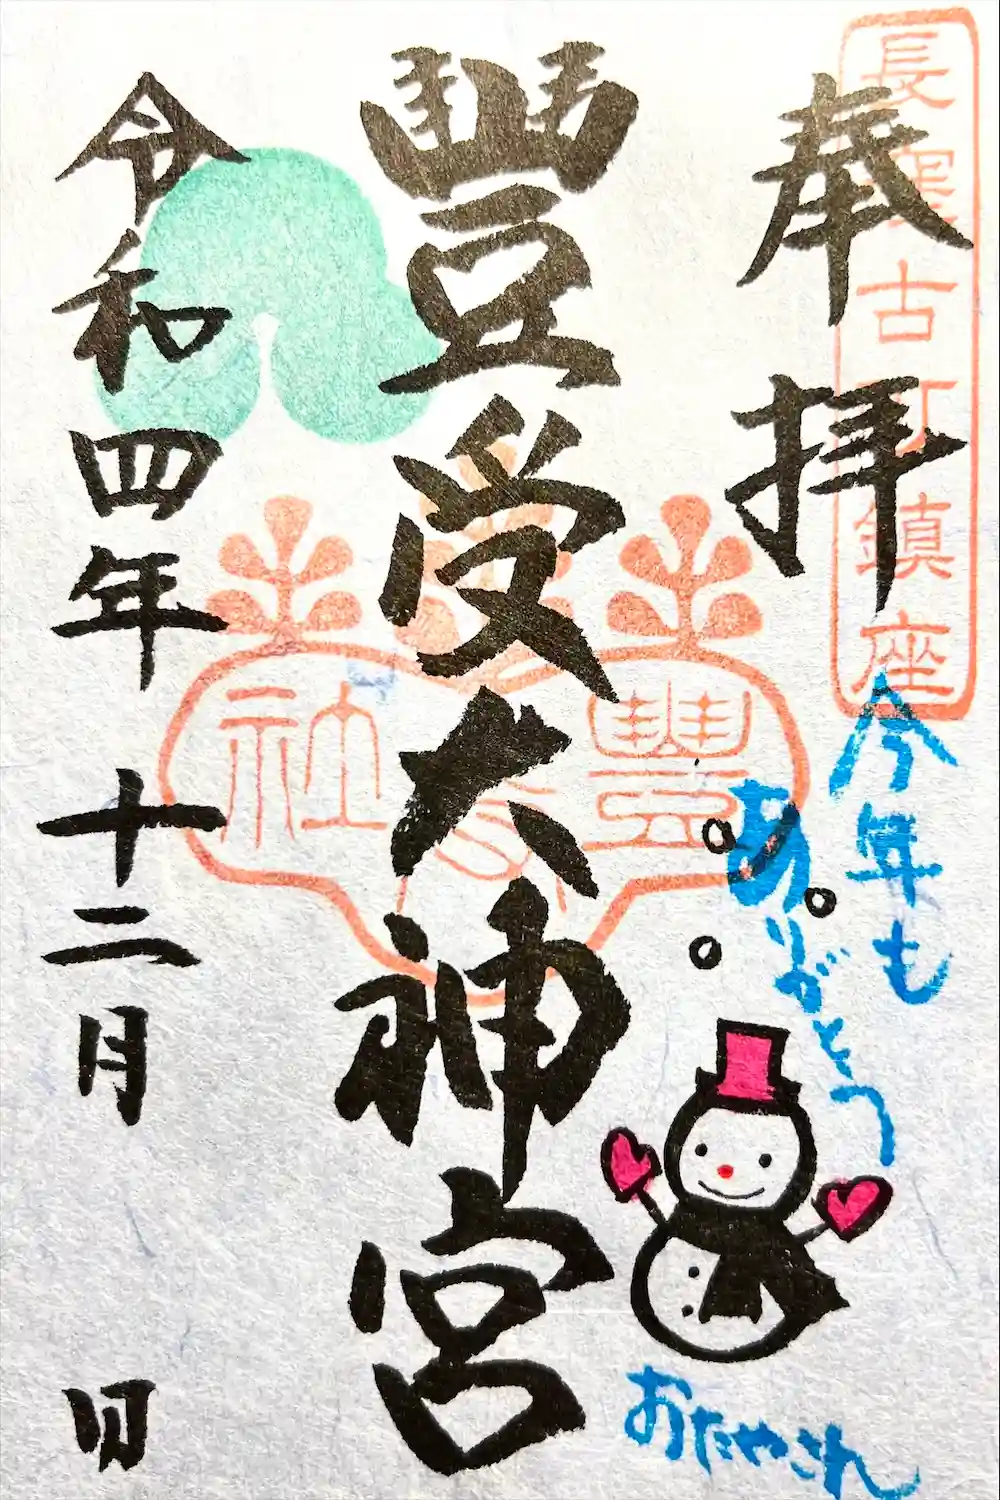 長窪古町鎮座
奉拝
今年も
ありがとう
おたやさん
豐受大神宮
豐受社
令和四年十二月 日